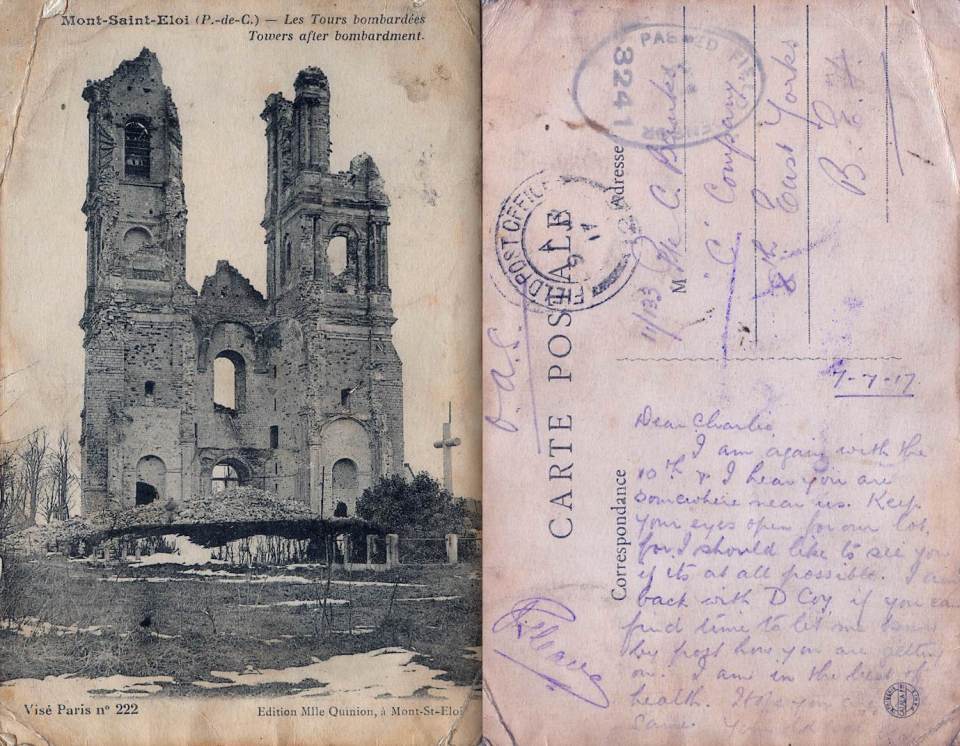 Mont-Saint-Eloi (P.-de-C.) — Les Tours bombardées
Towers after bombardment.
Visé Paris n° 222
Edition Mlle Quinion, à Mont-St-Eloi
PASSED FIELD CENSOR
3241
FIELD POST OFFICE
O.A.S.
CARTE POSTALE
Adresse
11/133 Pte C. Banks
M
"C" Company
8th East Yorks
B. E. F.
Correspondance
7-7-17
Dear Charlie
I am again with the
10th & I hear you are
somewhere near us. Keep
your eyes open for our lot,
for I should like to see you
if its at all possible. I am
back with D Coy, if you can
find time to let me know
by post how you are getting
on. I am in the best of
health. Hope you are
same.